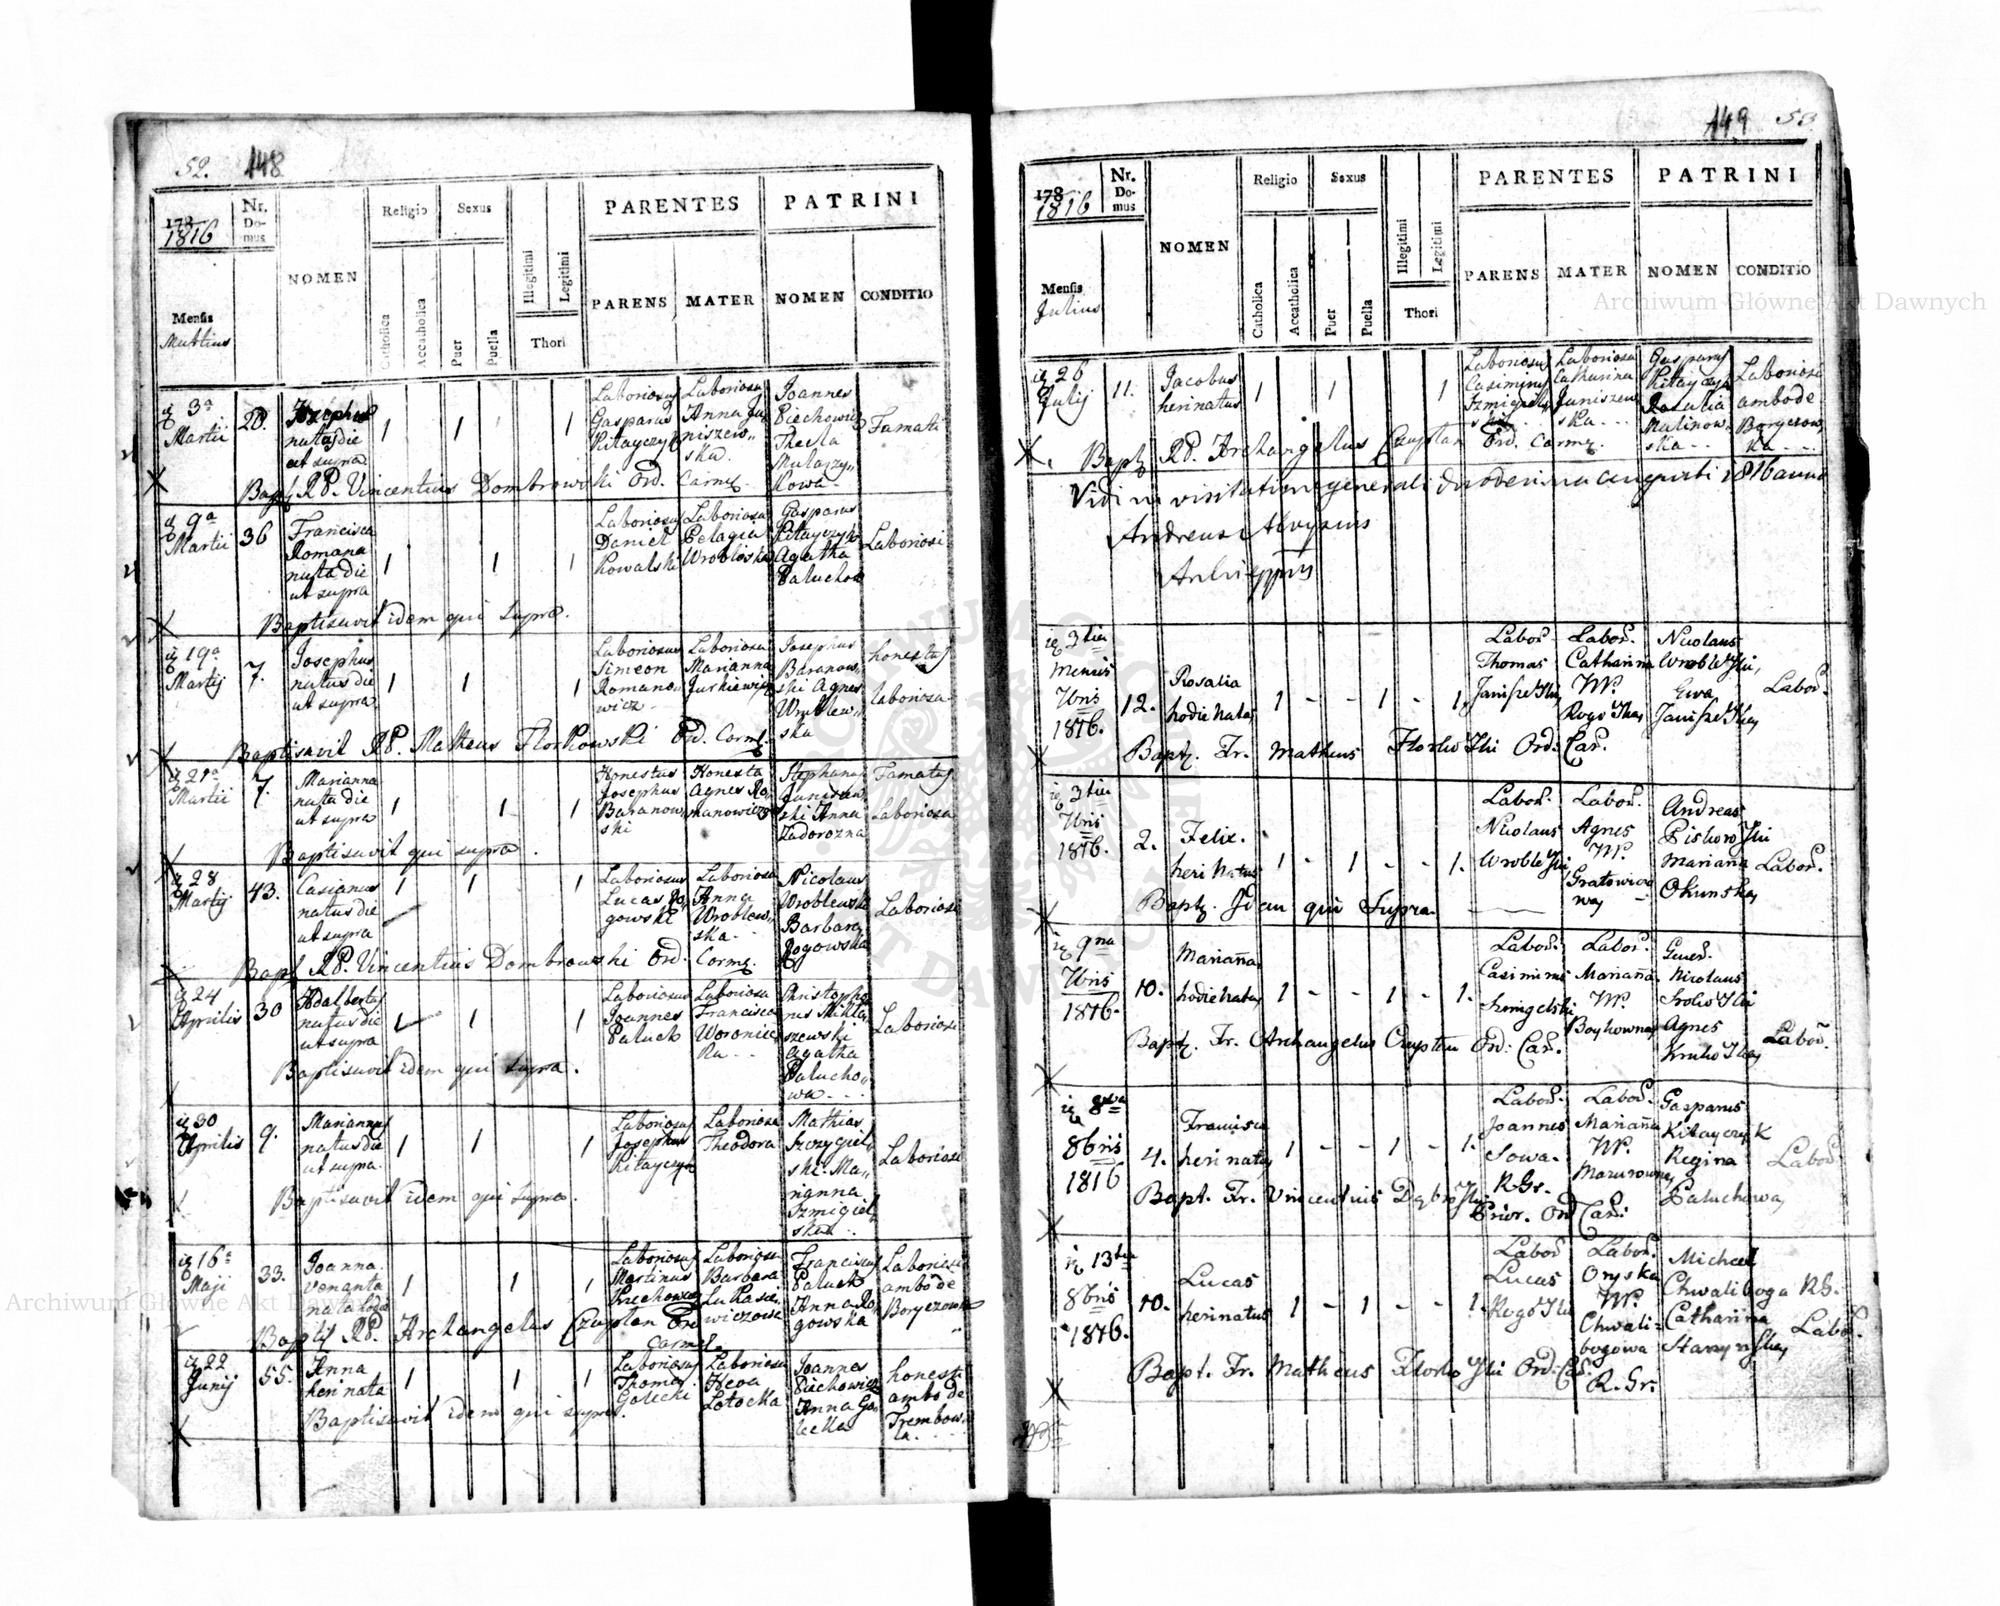 52. 148
178
1816
Nr. Domus
NOMEN
Religio
Sexus
PARENTES
PATRINI
Mensis
Martius
Catholica
Accatholica
Puer
Puella
Illegitimi
Legitimi
Thori
PARENS
MATER
NOMEN
CONDITIO
3a Martii
20.
Josephus natus die ut supra
1 1 1
Laboriosus Gasparus Kitayczyk
Laboriosa Anna Juniszewska
Joannes Piechowicz Thecla
Famati
Bapt. RP. Vincentius Dombrowski Ord. Carme.
9a Martii
36
Francisca Romana nata die ut supra
1 1 1
Laboriosus Daniel Kowalski
Laboriosa Pelagia Wrobloska
Gasparus Kitayczyk Agatha Paluchow
Laboriosi
Baptisavit idem qui supra.
19a Martij
7.
Josephus natus die ut supra
1 1 1
Laboriosus Simeon Romanowicz
Laboriosa Marianna Jurkiewicz
Josephus Baranowski Agnes Wroblewska
honestus
laboriosa
Baptisavit RP. Matheus Florkowski Ord. Carme.
21a Martii
7.
Marianna nata die ut supra
1 1 1
Honestus Josephus Baranowski
Honesta Agnes Romanowiczow
Stephanus Juniszewski Anna Zadorozna
Famatus
Laboriosa
Baptisavit qui supra.
28 Martij
43.
Casianus natus die ut supra
1 1 1
Laboriosus Lucas Rogowski
Laboriosa Anna Wroblewska
Nicolaus Wroblewski Barbara Rogowska
Laboriosi
Bapt. RP. Vincentius Dombrowski Ord. Carme.
24 Aprilis
30
Adalbertus natus die ut supra
1 1 1
Laboriosus Joannes Paluch
Laboriosa Francisca Woroniecka
Christophorus Miklaszewski Agatha Paluchowa
Laboriosi
Baptisavit idem qui supra.
30 Aprilis
9.
Mariannus natus die ut supra
1 1 1
Laboriosus Josephus Kitayczyk
Laboriosa Theodora
Mathias Szmygielski Marianna Szmigielska
Laboriosi
Baptisavit idem qui supra.
16a Maji
33.
Joanna Venanta nata
1 1 1
Laboriosus Martinus Piechowicz
Laboriosa Barbara Lukasiewiczowa
Franciscus Paluch Anna Rogowska
Laboriosi ambo de Boryczowka
Bapt. RP. Archangelus Czuptan Ord Carmel.
22 Junij
55.
Anna heri nata
1 1 1
Laboriosus Thomas Golecki
Laboriosa Heva Lotocka
Joannes Piechowicz Anna Golecka
honesti ambo de Trembowla
Baptisavit idem qui supra.
149 53
178
1816
Nr. Domus
NOMEN
Religio
Sexus
PARENTES
PATRINI
Mensis
Julius
Catholica
Accatholica
Puer
Puella
Illegitimi
Legitimi
Thori
PARENS
MATER
NOMEN
CONDITIO
26 Julij
11.
Jacobus heri natus
1 1 1
Laboriosus Casimirus Szmigielski
Laboriosa Catharina Juniszewska
Gasparus Kitayczyk Rosalia Malinowska
Laboriosi ambo de Boryczowka
Bapt. RP. Archangelus Czuptan Ord. Carme.
Vidi in visitatione generali duodecima augusti 1816 anno
Andreas Aloysius
Archieppus
3tia Mensis 7bris 1816.
12.
Rosalia hodie nata
1 - - 1 - 1.
Labor. Thomas Janiszewski
Labor. Catharina N. Rogoska
Nicolaus Wrobleski, Ewa Janiszeska
Labor.
Bapt. Fr. Matheus Florkoski Ord: Car.
3tia 7bris 1816.
2.
Felix. heri natus
1 - 1 - - 1.
Labor. Nicolaus Wrobleski
Labor. Agnes N.
Andreas Piskoroski Marianna Okunska
Labor.
Bapt. Idem qui Supra
9na 7bris 1816.
10.
Marianna, hodie nata
1 - - 1 - 1.
Labor. Casimirus Szmigelski
Labor. Marianna N. Boykowna
Gener. Nicolaus Agnes
Labor.
Bapt. Fr. Archangelus Czuptan Ord: Car.
8va 8bris 1816
4.
Francisca heri nata
1 - - 1 - 1.
Labor. Joannes Sowa. RGr.
Labor. Marianna N. Mazurowna
Gasparus Kitayczyk Regina Paluchowa
Labor.
Bapt. Fr. Vincentius Dąbroski Prior. Ord Car:
13tia 8bris 1816.
10.
Lucas heri natus
1 - 1 - - 1.
Labor Lucas Rogoski
Labor. Oryska N. Chwalibogowa R. Gr.
Michael Chwaliboga RG. Catharina Starzynska
Labor.
Bapt. Fr. Matheus Florkoski Ord: Car.
Archiwum Główne Akt Dawnych
Archiwum Główne Akt Dawnych